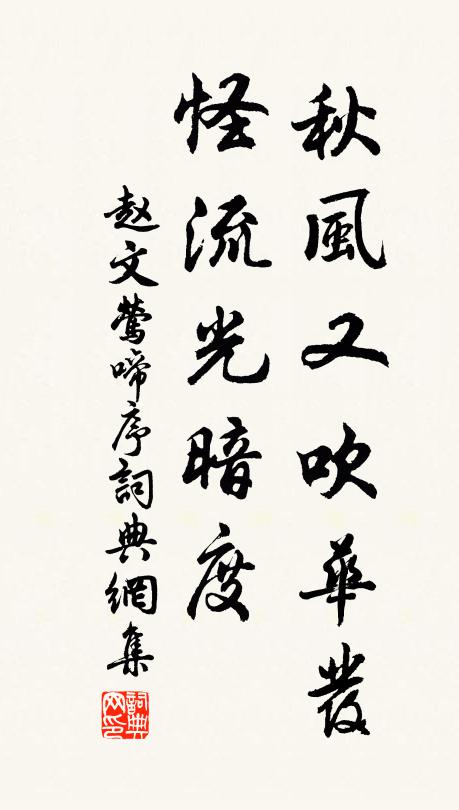 秋風又吹華發
怪流光暗度
赵文鶯啼序詞典網集
詞典网印